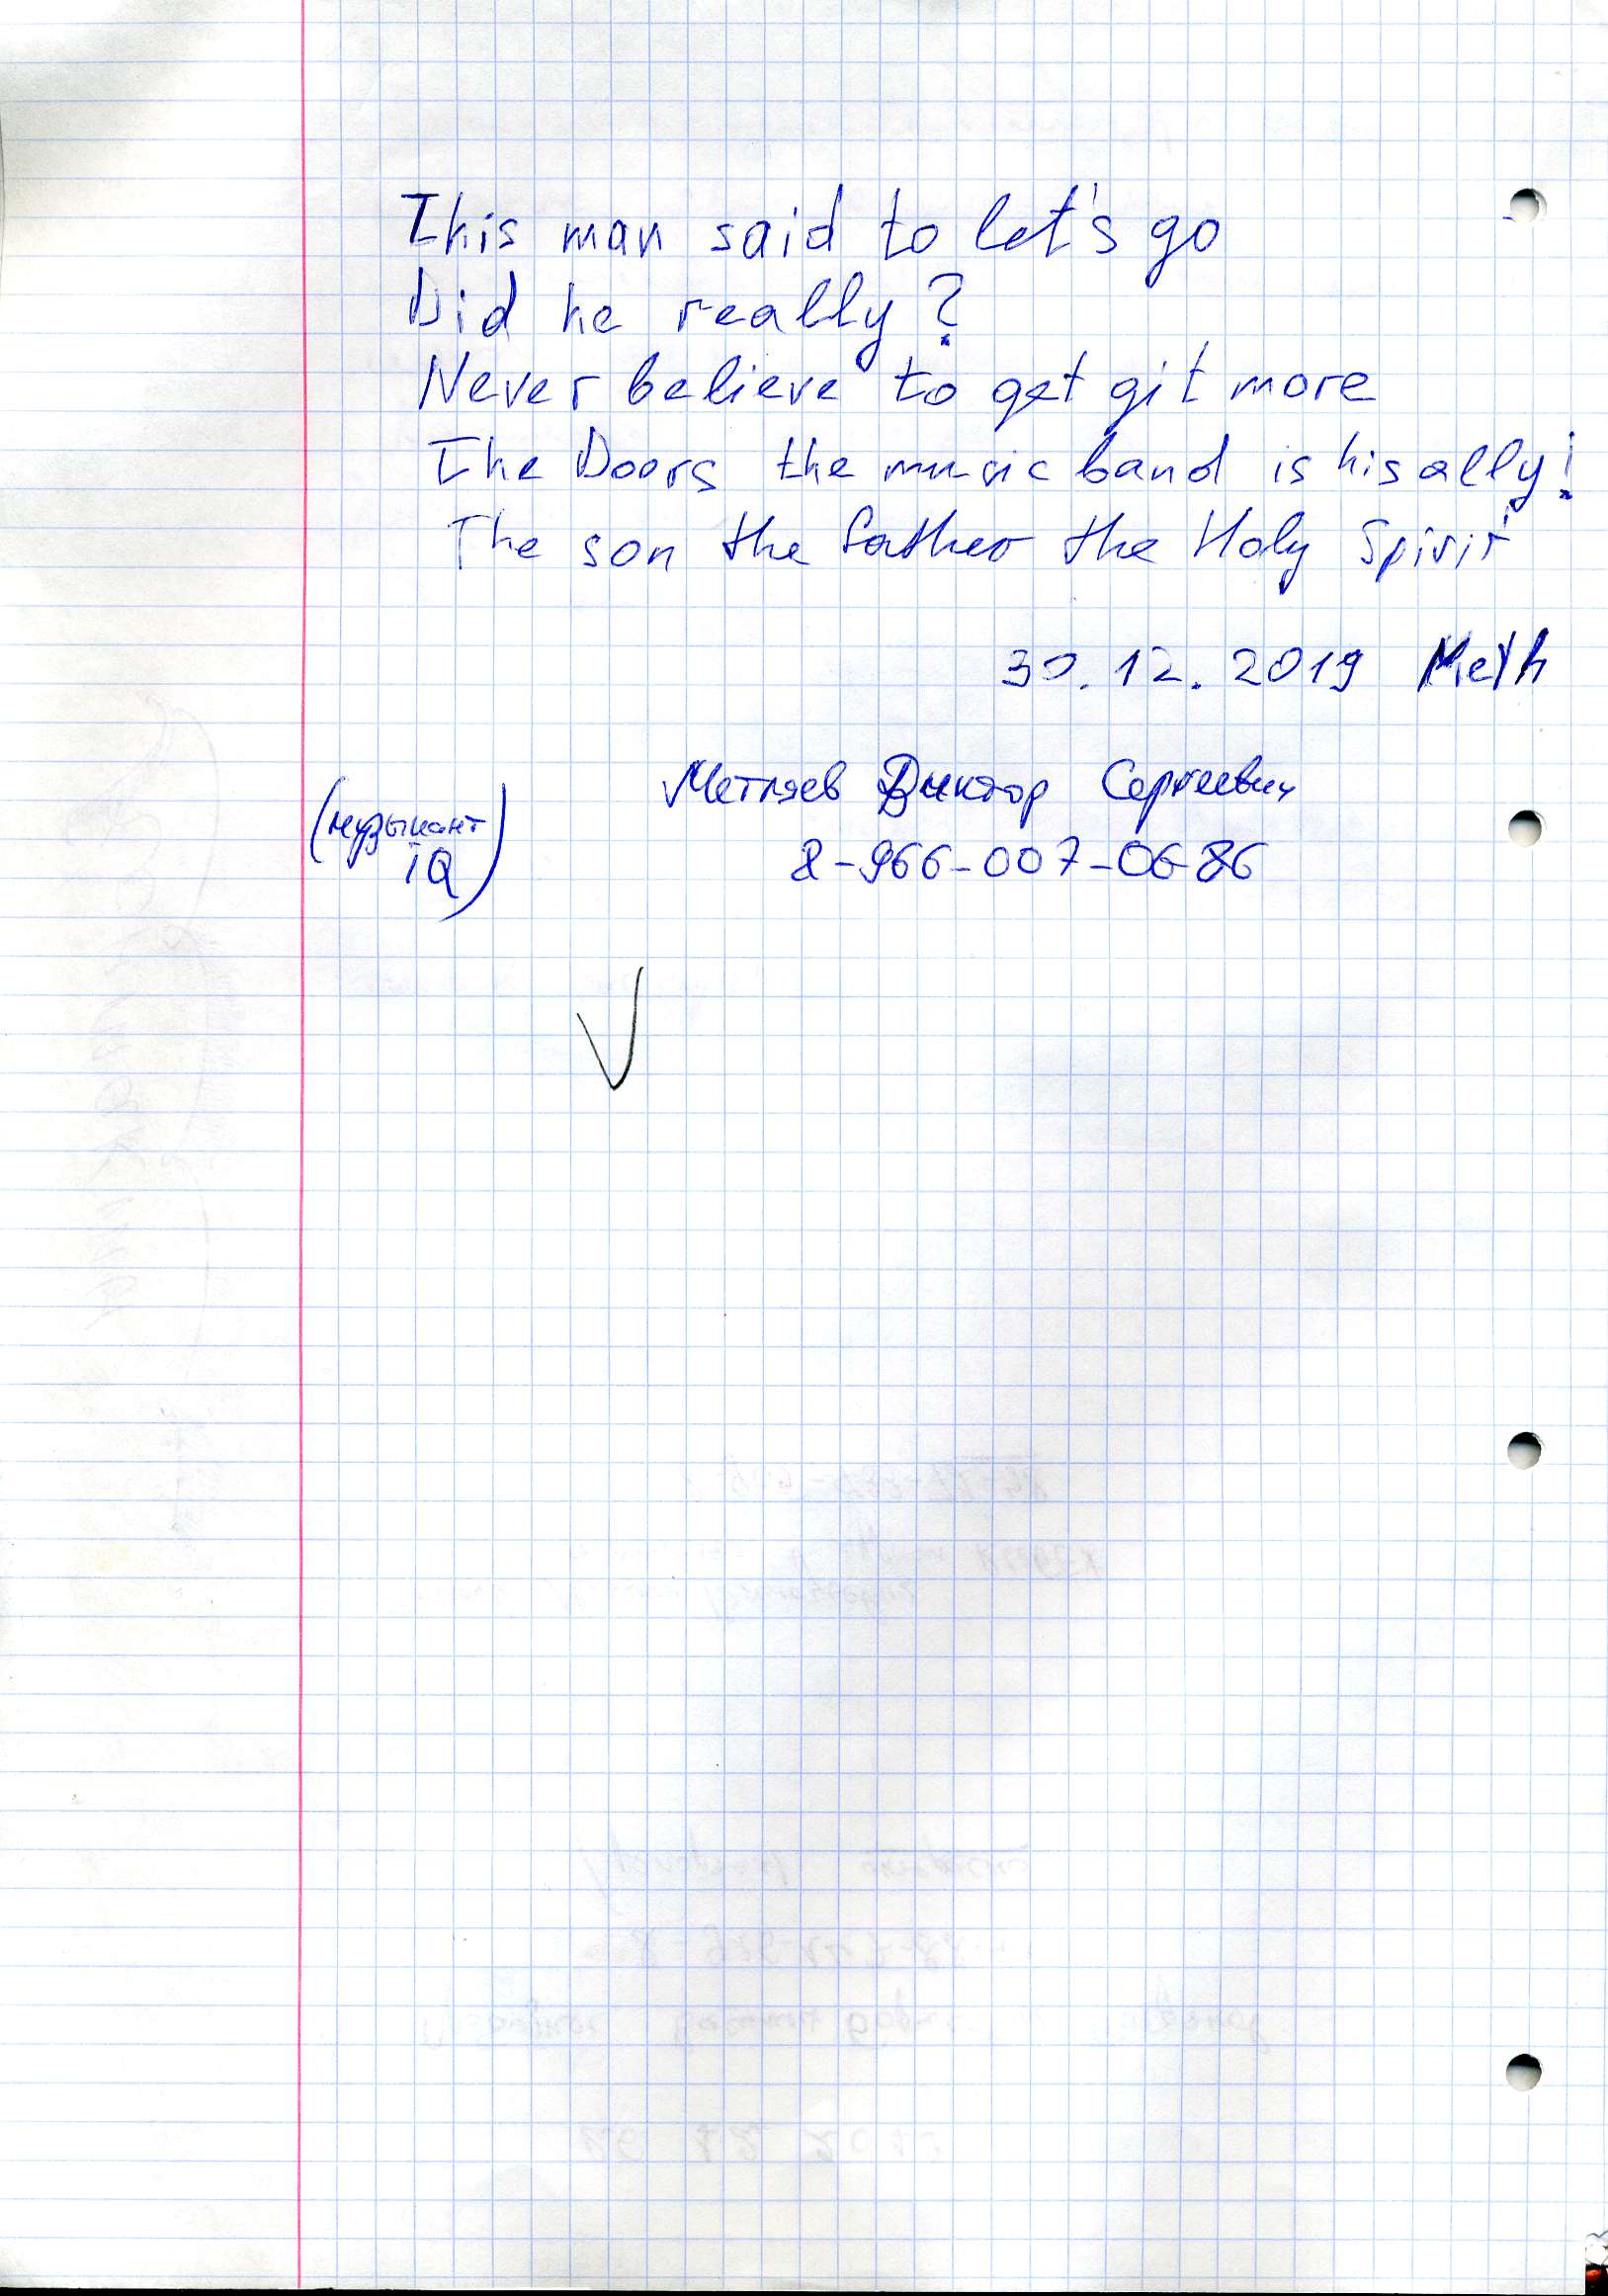 This man said to let's go
Did he really?
Never believe to get git more
The Doors the music band is his ally!
The son the father the Holy Spirit
30.12.2019 Meth
Метляев Виктор Сергеевич
(музыкант IQ)
8-966-007-06-86